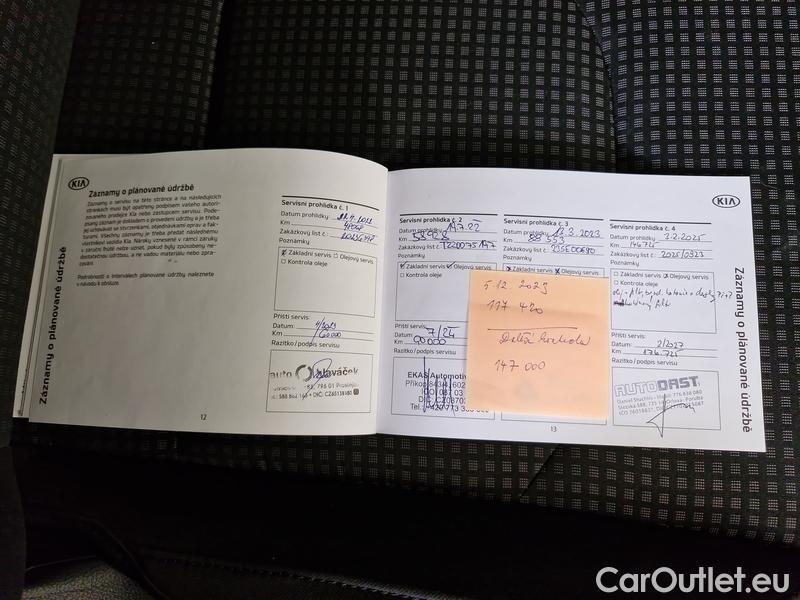 KIA
Záznamy o plánované údržbě
Záznamy o servisu na této stránce a na následujících
stránkách musí být opatřeny podpisem vašeho autori-
zovaného prodejce Kia nebo zástupcem servisu. Pode-
psaný záznam je dokladem o provedení údržby a je třeba
jej uchovávat se stvrzenkami, objednávkami oprav a fak-
turami. Všechny záznamy je třeba předat následnému
vlastníkovi vozidla Kia. Nároky vznesené v rámci záruky
v záruční lhůtě nelze uznat, pokud byly způsobeny ne-
dostatečnou údržbou, a ne vadou materiálu nebo zpra-
cování.
Podrobnosti o intervalech plánované údržby naleznete
v návodu k obsluze.
Záznamy o plánované údržbě
Servisní prohlídka č. 1
Datum prohlídky
Km
Zakázkový list č.:
Poznámky
Základní servis Olejový servis
Kontrola oleje
Příští servis:
Datum 4/2023
Km 60000
Razítko / podpis servisu
auto Hlaváček
12
KIA
Servisní prohlídka č. 2
Datum prohlídky
Km
Zakázkový list č.:
Poznámky
Základní servis Olejový servis
Kontrola oleje
Příští servis:
Datum 7/24
Km 90000
Razítko / podpis servisu
EKAS Automotiv
Servisní prohlídka č. 3
Datum prohlídky 13.3.2023
Km 88 553
Zakázkový list č.:
Poznámky
Základní servis Olejový servis
5 12 2023
117 420
Další
147 000
Servisní prohlídka č. 4
Datum prohlídky 3.2.2025
Km 146725
Zakázkový list č.: 2025/0323
Poznámky
Základní servis Olejový servis
Kontrola oleje
Příští servis:
Datum 2/2027
Km 176.725
Razítko / podpis servisu
AUTODAST
13
Záznamy o plánované údržbě
CarOutlet.eu